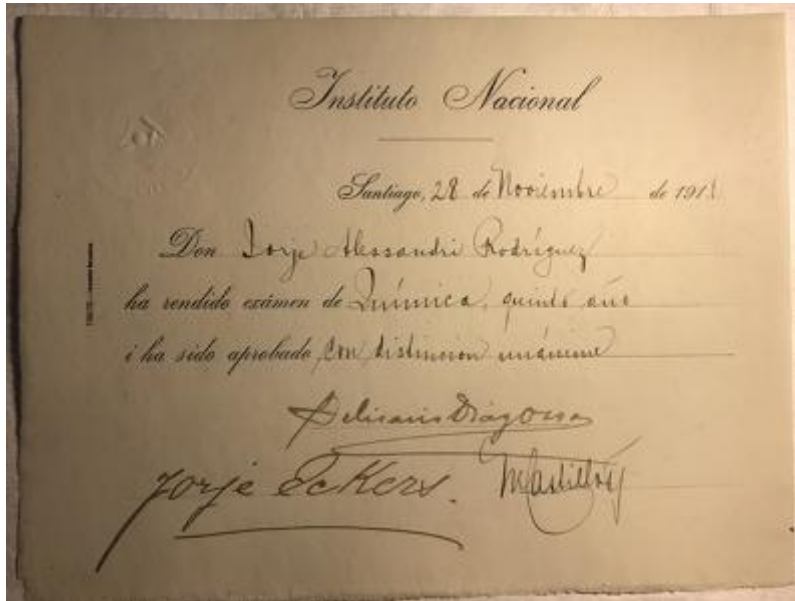 Instituto Nacional
Santiago, 28 de Noviembre de 191
Don Jorje Alessandri Rodríguez
ha rendido exámen de Química, quinto año
i ha sido aprobado, con distincion unánime
Jorje Eckers.